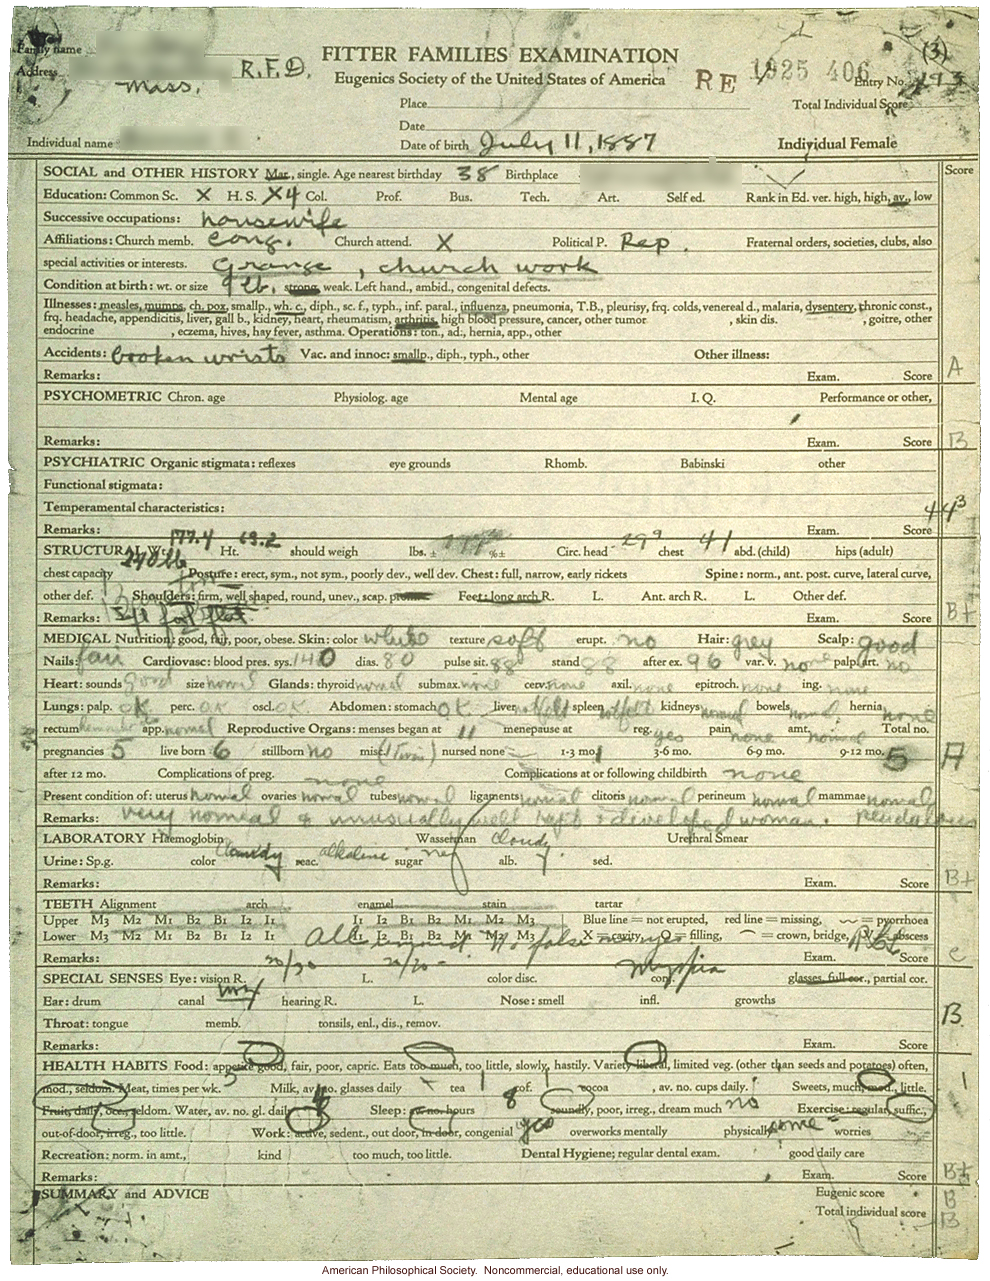 Family name
Address R.F.D. FITTER FAMILIES EXAMINATION (3)
Mass. Eugenics Society of the United States of America RE 1925 406 Entry No.
Place Total Individual Score
Date
Individual name Date of birth July 11, 1887 Individual Female
SOCIAL and OTHER HISTORY Mar., single. Age nearest birthday 38 Birthplace Score
Education: Common Sc. X H. S. X4 Col. Prof. Bus. Tech. Art. Self ed. Rank in Ed. ver. high, high, av., low
Successive occupations: housewife
Affiliations: Church memb. Cong. Church attend. X Political P. Rep. Fraternal orders, societies, clubs, also
special activities or interests. Grange, church work
Condition at birth: wt. or size 9 lb. strong, weak. Left hand., ambid., congenital defects.
Illnesses: measles, mumps, ch. pox, smallp., wh. c., diph., sc. f., typh., inf. paral., influenza, pneumonia, T.B., pleurisy, frq. colds, venereal d., malaria, dysentery, chronic const.,
frq. headache, appendicitis, liver, gall b., kidney, heart, rheumatism, arthritis, high blood pressure, cancer, other tumor , skin dis. , goitre, other
endocrine , eczema, hives, hay fever, asthma. Operations: ton., ad., hernia, app., other
Accidents: broken wrists Vac. and innoc: smallp., diph., typh., other Other illness:
Remarks: Exam. Score A
PSYCHOMETRIC Chron. age Physiolog. age Mental age I. Q. Performance or other,
Remarks: Exam. Score B
PSYCHIATRIC Organic stigmata: reflexes eye grounds Rhomb. Babinski other
Functional stigmata:
Temperamental characteristics:
Remarks: Exam. Score
STRUCTURAL Wt. 177.4 Ht. 63.2 should weigh lbs. ± %± Circ. head chest 41 abd. (child) hips (adult)
chest capacity Posture: erect, sym., not sym., poorly dev., well dev. Chest: full, narrow, early rickets Spine: norm., ant. post. curve, lateral curve,
other def. Shoulders: firm, well shaped, round, unev., scap. Feet: long arch R. L. Ant. arch R. L. Other def.
Remarks: Exam. Score B+
MEDICAL Nutrition: good, fair, poor, obese. Skin: color white texture soft erupt. no Hair: grey Scalp: good
Nails: fair Cardiovasc: blood pres. sys. 140 dias. 80 pulse sit. 88 stand 88 after ex. 96 var. v. none palp. art. no
Heart: sounds good size normal Glands: thyroid normal submax. none cerv. none axil. none epitroch. none ing. none
Lungs: palp. OK perc. OK oscl. OK Abdomen: stomach OK liver not felt spleen not felt kidneys normal bowels normal hernia none
rectum app. normal Reproductive Organs: menses began at 11 menopause at reg. yes pain none amt. normal Total no.
pregnancies 5 live born 6 stillborn no mis. (1 Twin) nursed none 1-3 mo. 3-6 mo. 6-9 mo. 9-12 mo. 5 A
after 12 mo. Complications of preg. none Complications at or following childbirth none
Present condition of: uterus normal ovaries normal tubes normal ligaments normal clitoris normal perineum normal mammae normal
Remarks: very normal & unusually well kept & developed woman. pendulous
LABORATORY Haemoglobin Wasserman cloudy Urethral Smear
Urine: Sp.g. color cloudy reac. alkaline sugar neg alb. sed.
Remarks: Exam. Score B+
TEETH Alignment arch enamel stain tartar
Upper M3 M2 M1 B2 B1 I2 I1 I1 I2 B1 B2 M1 M2 M3 Blue line = not erupted, red line = missing, = pyorrhoea
Lower M3 M2 M1 B2 B1 I2 I1 I1 I2 B1 B2 M1 M2 M3 X = cavity, O = filling, = crown, bridge, abscess
Remarks: Exam. Score C
SPECIAL SENSES Eye: vision R. 20/30 L. color disc. corr. Myopia glasses, full cor., partial cor.
Ear: drum canal wax hearing R. L. Nose: smell infl. growths
Throat: tongue memb. tonsils, enl., dis., remov. B
Remarks: Exam. Score
HEALTH HABITS Food: appetite good, fair, poor, capric. Eats too much, too little, slowly, hastily. Variety liberal, limited veg. (other than seeds and potatoes) often,
mod., seldom. Meat, times per wk. Milk, av. no. glasses daily tea 1 cof. 1 cocoa , av. no. cups daily. Sweets, much, mod., little.
Fruit, daily, occ., seldom. Water, av. no. gl. daily Sleep: av. no. hours 8 soundly, poor, irreg., dream much no Exercise: regular, suffic.,
out-of-door, irreg., too little. Work: active, sedent., out door, in door, congenial yes overworks mentally physically some worries
Recreation: norm. in amt., kind too much, too little. Dental Hygiene; regular dental exam. good daily care
Remarks: Exam. Score B+
SUMMARY and ADVICE Eugenic score B
Total individual score B
American Philosophical Society. Noncommercial, educational use only.